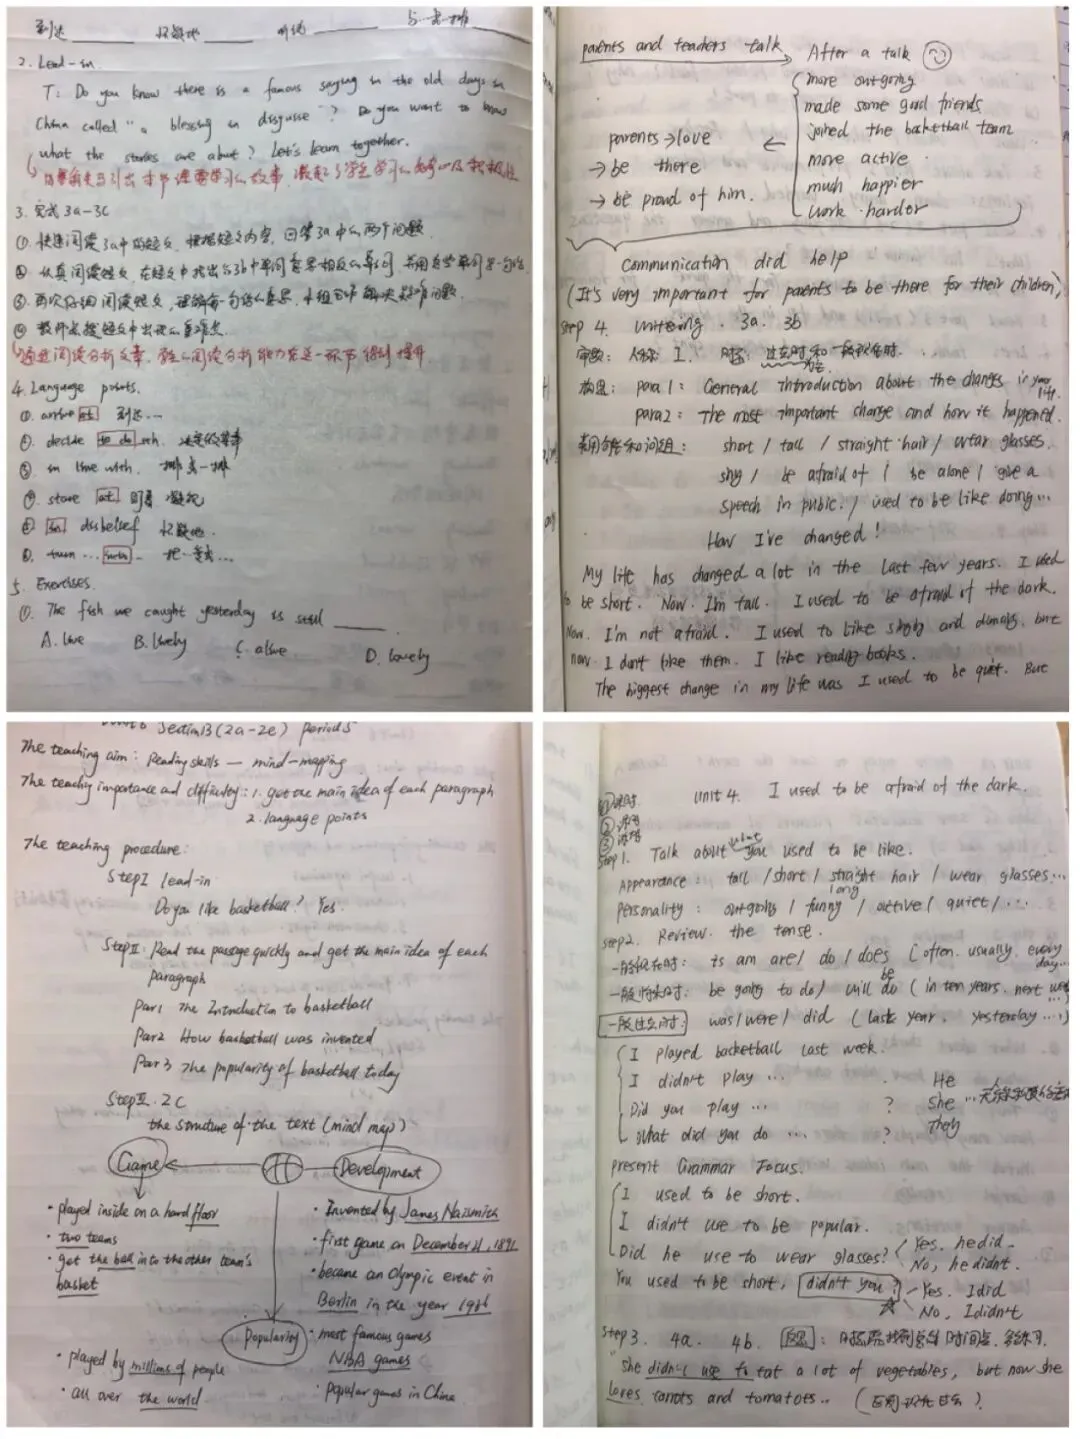 到达 怀疑地 听见 与一排
2. Lead-in.
T: Do you know there is a famous saying in the old days in
China called "a blessing in disguise"? Do you want to know
what the stories are about? Let's learn together.
3. 完成3a-3c
①. 快速阅读3a中的短文, 根据短文内容, 回答3a中的两个问题.
② 认真阅读短文, 在短文中找出与3b中单词意思相反的
③. 再次仔细阅读短文, 理解每一句话的意思, 小组合作解决疑难问题.
④ 教师点拨短文中出现的重难点.
通过阅读分析文章, 学生的阅读分析能力在这一环节得到提升
4. Language points.
①. arrive at 到达...
②. decide to do sth. 决定做某事
③. in line with. 排成一排
④. stare at 盯着 凝视
⑤ in disbelief 怀疑地.
⑥. turn ... into ... 把...变成...
5. Exercises.
①. The fish we caught yesterday is still ____.
A. live B. lively C. alive D. lovely
parents and teachers talk → After a talk
more outgoing
made some good friends
parents → love joined the basketball team
→ be there more active
→ be proud of him. much happier
work harder
Communication did help
(It's very important for parents to be there for their children)
Step 4. writing. 3a. 3b
审题: 人称: I. 时态: 过去时和一般现在时.
构思: para 1: General introduction about the changes in your life.
para 2: The most important change and how it happened.
常用句型和词组: short / tall / straight hair / wear glasses.
shy / be afraid of / be alone / give a
speech in public. / used to be like doing ...
How I've changed!
My life has changed a lot in the last few years. I used
to be short. Now. I'm tall. I used to be afraid of the dark.
Now. I'm not afraid. I used to like
now. I don't like them. I like reading books.
The biggest change in my life was I used to be quiet. But
Section B (2a-2e) Period 5
The teaching aim: Reading skills — mind-mapping
The teaching importance and difficulty: 1. get the main idea of each paragraph
2. language points
The teaching procedure:
Step I lead-in
Do you like basketball? Yes.
Step II: Read the passage quickly and get the main idea of each
paragraph
Par 1 The Introduction to basketball
Par 2 How basketball was invented
Par 3 The popularity of basketball today
Step III. 2c
the structure of the text (mind map)
Game Development
· played inside on a hard floor
· two teams
· get the ball into the other team's
basket
· Invented by James Naismith
· first game on December 21, 1891
· became an Olympic event in
Berlin in the year 1936
Popularity
· most famous games
NBA games
· popular games in China
· played by millions of people
· all over the world
Unit 4. I used to be afraid of the dark.
Step 1. Talk about what you used to be like.
Appearance: tall / short / straight hair / wear glasses ...
long
personality: outgoing / funny / active / quiet / ...
step 2. Review. the tense.
一般现在时: is am are / do / does (often. usually. every day...
一般将来时: be going to do / will do (in ten years. next week ...)
be
一般过去时: was / were / did (last year. yesterday ...)
I played basketball last week.
I didn't play ... He
Did you play ... ? She
What did you do ... ? They
present Grammar Focus.
I used to be short.
I didn't use to be popular.
Did he use to wear glasses? Yes. he did.
No, he didn't.
You used to be short, didn't you? Yes. I did
No, I didn't
Step 3. 4a. 4b
She didn't use to eat a lot of vegetables, but now she
loves carrots and tomatoes..